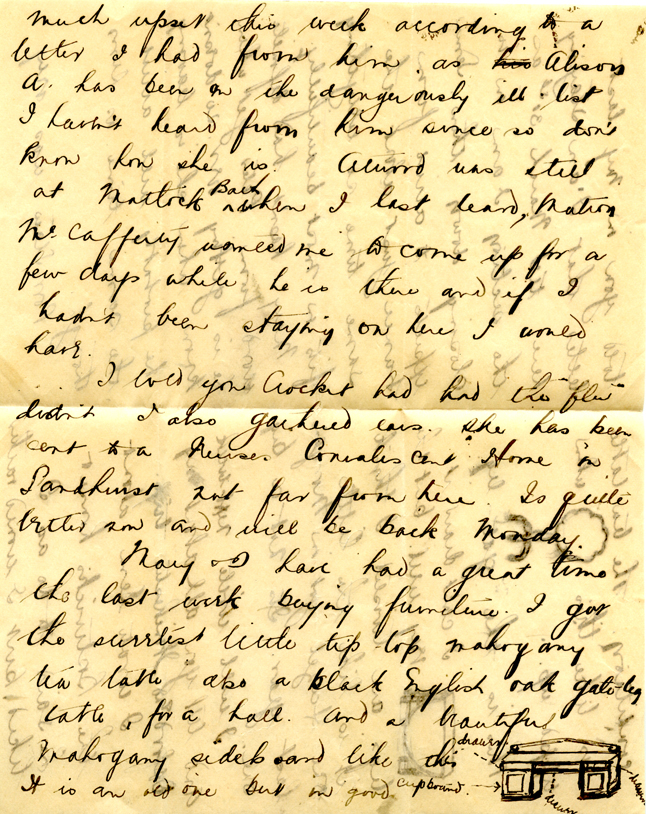 much upset this week according to a
letter I had from him. as his Alison
A. has been on the dangerously ill list
I havn't heard from him since so don't
know how she is Atwood was still
at Matlock Bath when I last heard, Matron
McCafferty wanted me to come up for a
few days while he is there and if I
hadn't been staying on here I would
have.
I told you Crocket had had the "flu"
didn't I also gathered ears. She has been
cent to a Nurses Convalescent Home in
Sandhurst not far from here. Is quite
better now and will be back Monday.
Mary & I have had a great time
the last week buying furniture. I got
the sweetest little tip top mahogany
tea table also a black English oak gate-leg
table, for a hall. And a beautiful
Mahogany sideboard like this
drawer
It is an old one but in good
cupboard
drawer